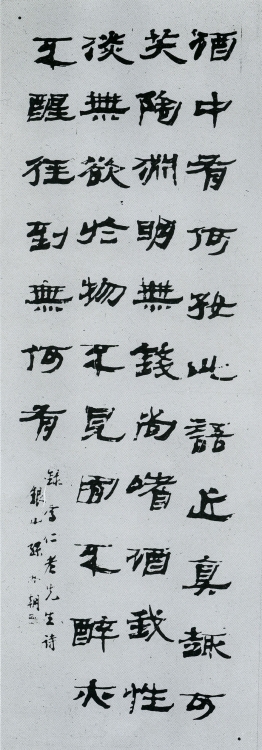 酒中有何好此語近真趣可
笑陶淵明無錢尚嗜酒我性
淡無欲於物不見囿不醉亦
不醒往到無何有
錄李仁老先生詩
銀山